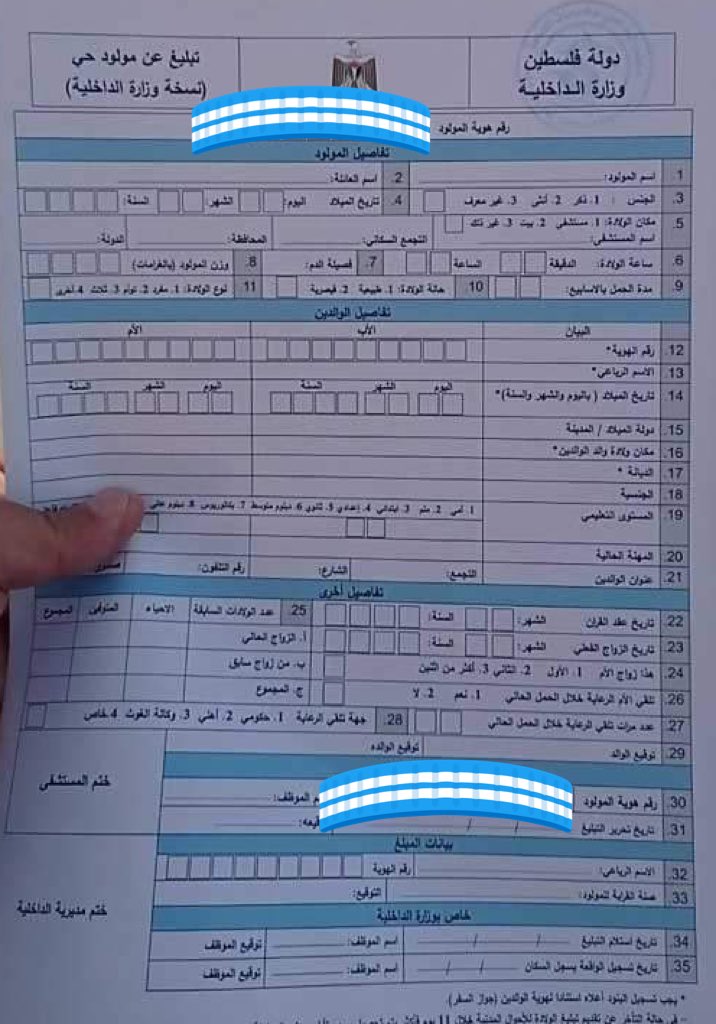 دولة فلسطين
وزارة الداخلية
تبليغ عن مولود حي
(نسخة وزارة الداخلية)
رقم هوية المولود
تفاصيل المولود
1. اسم المولود: 2. اسم العائلة:
3. الجنس : 1. ذكر 2. أنثى 3. غير معرف 4. تاريخ الميلاد اليوم: الشهر: السنة:
5. مكان الولادة: 1. مستشفى 2. بيت 3. غير ذلك
اسم المستشفى: التجمع السكاني: المحافظة: الدولة:
6. ساعة الولادة: الدقيقة الساعة 7. فصيلة الدم: 8. وزن المولود (بالغرامات)
9. مدة الحمل بالاسابيع: 10. حالة الولادة: 1. طبيعية 2. قيصرية 11. نوع الولادة: 1. مفرد 2. توأم 3. ثلاث 4. أخرى
تفاصيل الوالدين
البيان الأب الأم
12. رقم الهوية*
13. الاسم الرباعي*
14. تاريخ الميلاد ( باليوم والشهر والسنة)* اليوم الشهر السنة اليوم الشهر السنة
15. دولة الميلاد / المدينة
16. مكان ولادة والد الوالدين*
17. الديانة *
18. الجنسية
19. المستوى التعليمي 1. أمي 2. ملم 3. ابتدائي 4. إعدادي 5. ثانوي 6. دبلوم متوسط 7. بكالوريوس 8. دبلوم عالي
20. المهنة الحالية
21. عنوان الوالدين التجمع: الشارع: رقم التلفون:
تفاصيل أخرى
22. تاريخ عقد القران الشهر: السنة: 25. عدد الولادات السابقة الاحياء المتوفين المجموع
23. تاريخ الزواج الفعلي الشهر: السنة: أ. الزواج الحالي
24. هذا زواج الأم 1. الأول 2. الثاني 3. أكثر من اثنين ب. من زواج سابق
26. تلقي الأم الرعاية خلال الحمل الحالي 1. نعم 2. لا ج. المجموع
27. عدد مرات تلقي الرعاية خلال الحمل الحالي 28. جهة تلقي الرعاية 1. حكومي 2. أهلي 3. وكالة الغوث 4. خاص
29. توقيع الوالد توقيع الوالدة
ختم المستشفى
30. رقم هوية المولود م الموظف:
31. تاريخ تحرير التبليغ / / قيعه:
بيانات المبلغ
32. الاسم الرباعي: رقم الهوية
33. صلة القرابة للمولود: التوقيع:
ختم مديرية الداخلية
خاص بوزارة الداخلية
34. تاريخ استلام التبليغ / / اسم الموظف: توقيع الموظف
35. تاريخ تسجيل الواقعة بسجل السكان / / اسم الموظف: توقيع الموظف
* يجب تسجيل البنود أعلاه استنادا لهوية الوالدين (جواز السفر).
- في حالة التأخر عن تقديم تبليغ الولادة للأحوال المدنية خلال 11 يوم